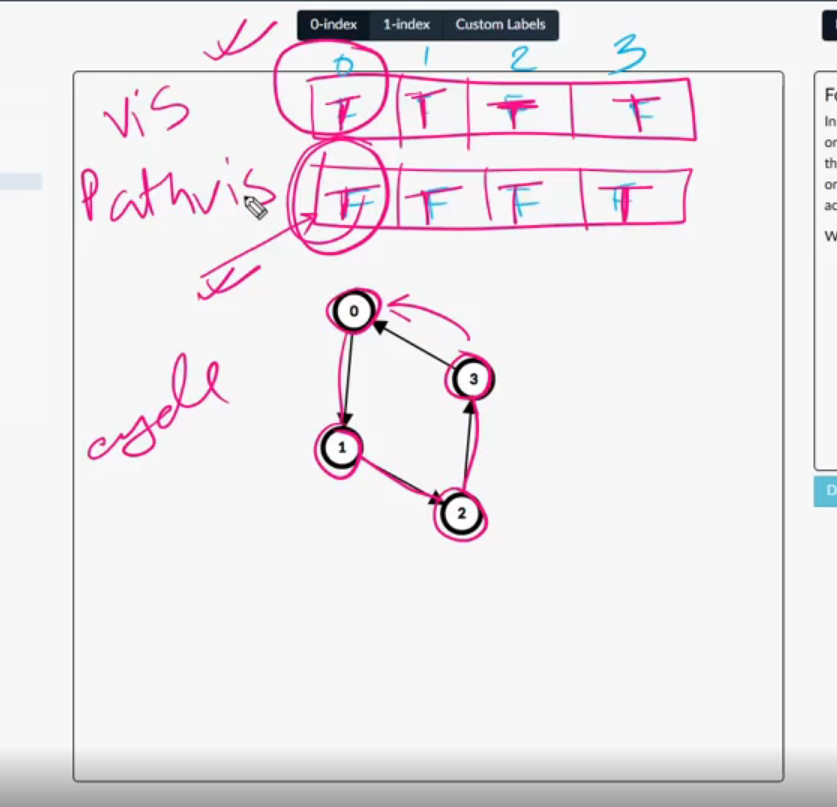 0-index 1-index Custom Labels
0 1 2 3
vis T T T T
Pathvis T T T T
cycle
0
3
1
2
Fo
In
or
th
or
ac
W
D